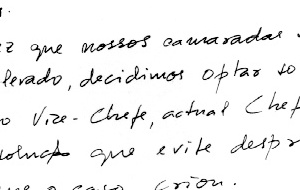 ez que nossos camaradas
levado, decidimos optar so
o Vize-Chefe, actual Chef
que evite despr
que o caso criou.